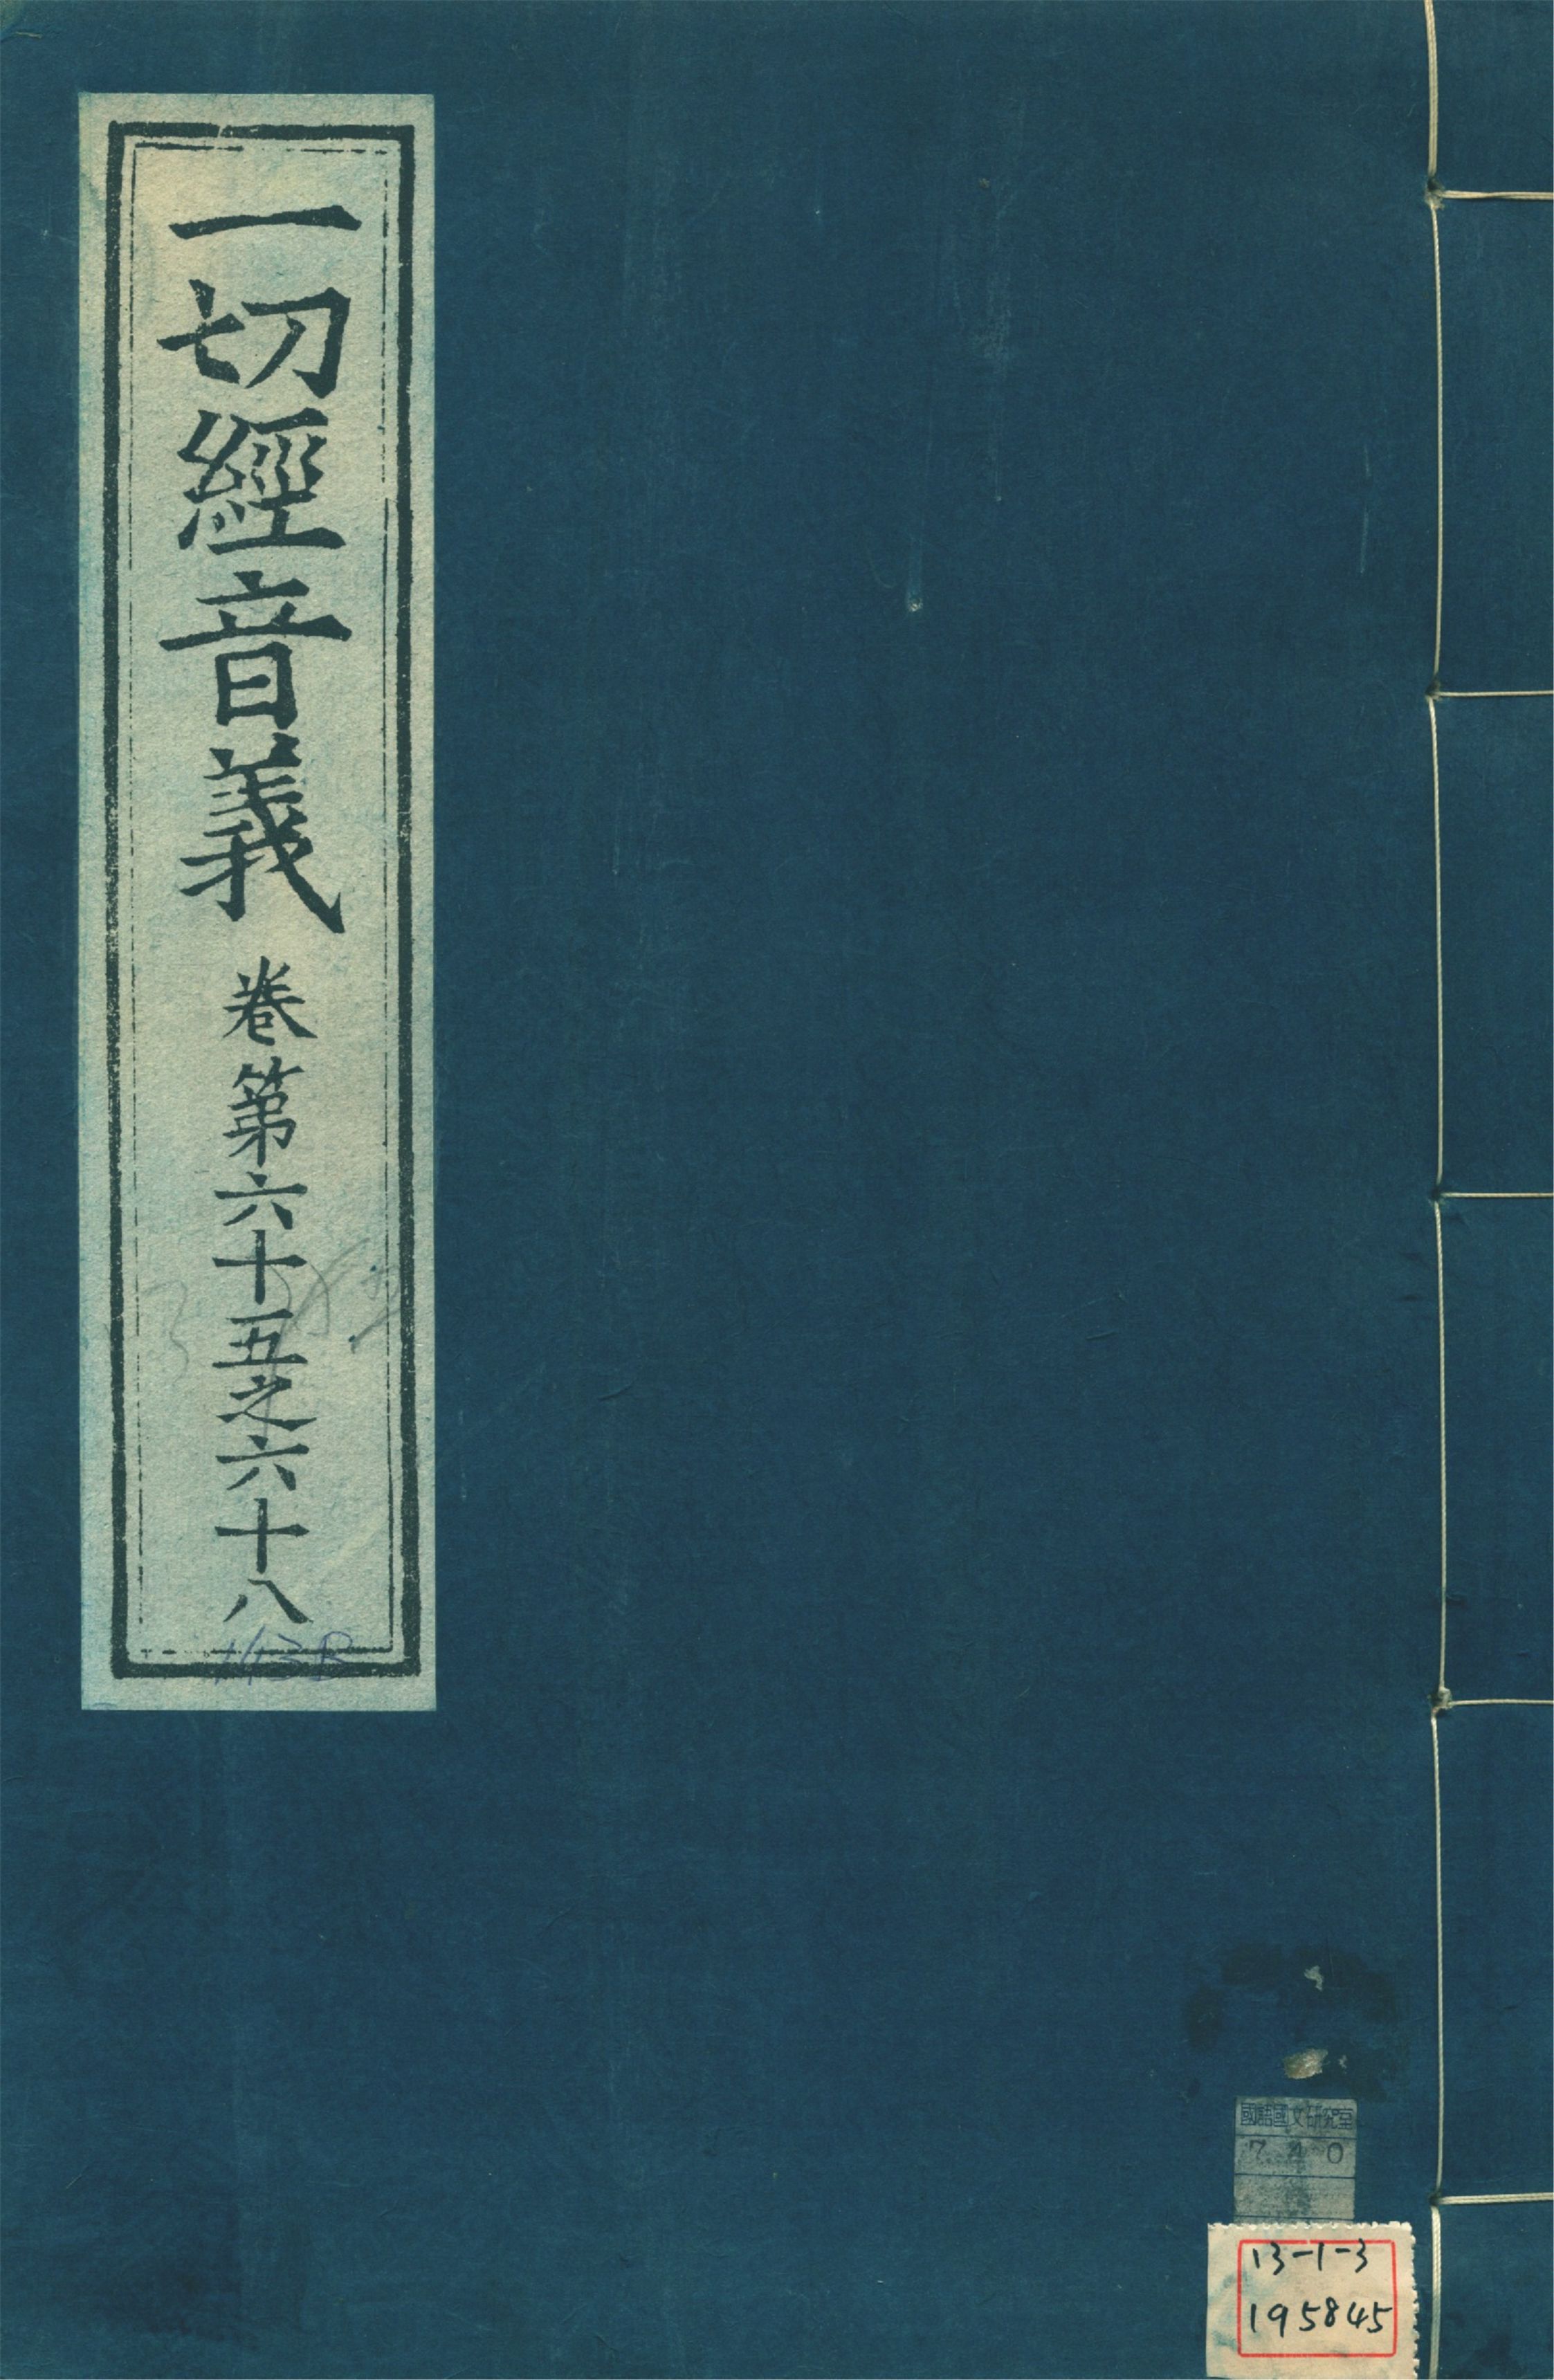 一切經音義 卷第六十五之六十八
143B
國語國文研究室
740
13-1-3
195845